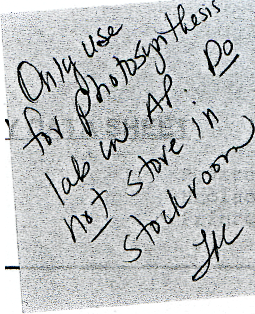 Only use
for photosynthesis
lab in AP. Do
not store in
stockroom